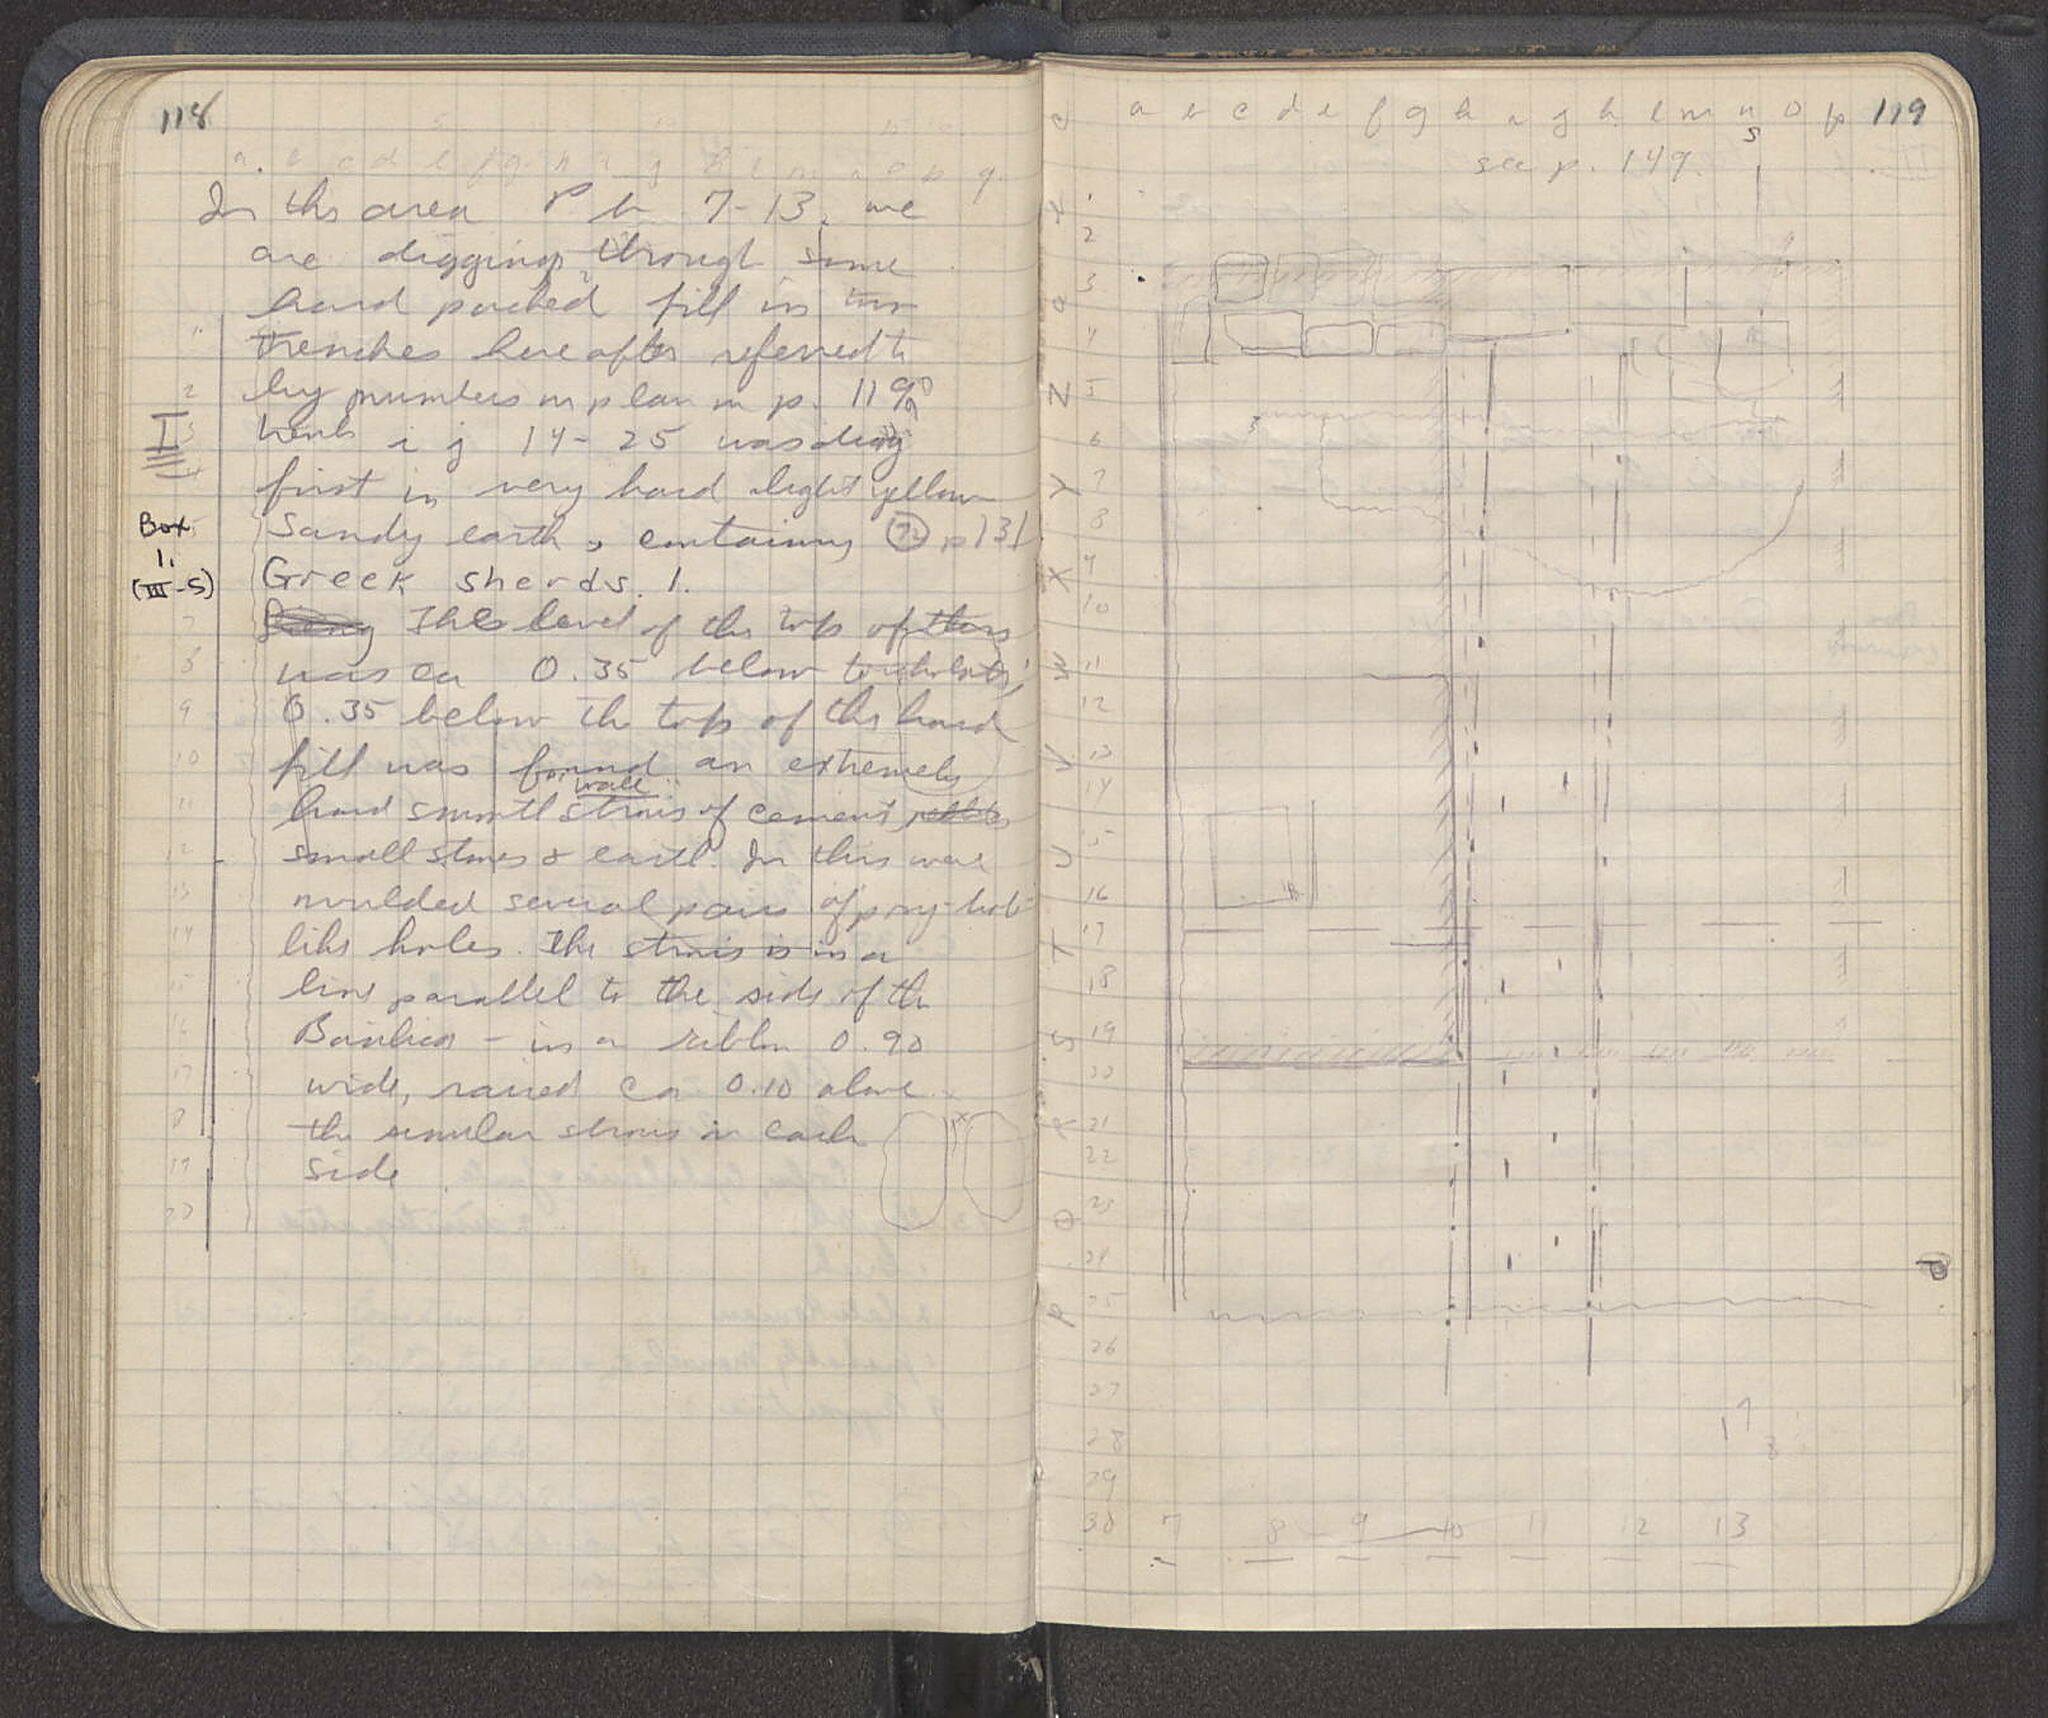 118
a b c d e f g h i j k l m n o p q
In this area P h 7-13, we
are digging through some
hard packed fill in two
trenches here after referred to
by numbers on plan on p. 119
i j 14-25 was dug
I
first in very hard light yellow
Box
1.
(III-S)
sandy earth, containing p 131
Greek sherds. 1.
The level of the top of this
was ca 0.35 below
0.35 below the top of this hard
fill was found an extremely
wall
hard smooth strosis of cement, pebbles
small stones & earth. In this were
moulded several pairs of pry-hole
like holes. The strosis is in a
line parallel to the side of the
Basilica - in a ribbon 0.90
wide, raised ca 0.10 above
the similar strosis on each
side
1
2
3
4
7
8
9
10
11
12
13
14
15
16
17
8
19
20
x
a b c d e f g h i j k l m n o p 119
S
see p. 149.
1
2
3
4
Z 5
6
Y 7
8
X 9
10
W 11
12
V 13
14
U 15
16
T 17
18
S 19
20
R 21
22
Q 23
24
P 25
26
27
28
29
30 7 8 9 10 11 12 13